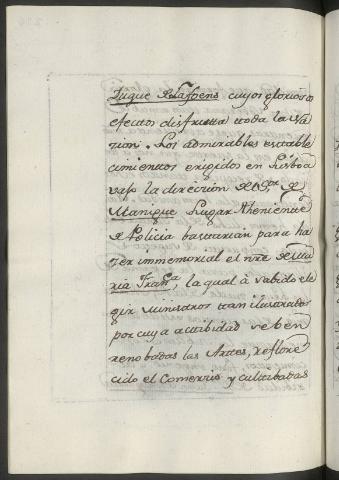 Duque de Lafoens cuyos gloriosos
efectos disfruta toda la Na
zion. Los admirables estable
cimientos erigidos en Lisboa
vajo la direccion del Sor. de
Manique Lugar Theniente
de Policia bastarian para ha
zer immemorial el nre de Ma
ria Franca, la qual à sabido ele
gir Ministros tan ilustrados
por cuya actibidad se ben
renobadas las Artes, reflore
cido el Comercio y cultibadas